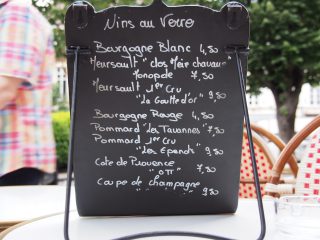 Vins au Verre
Bourgogne Blanc 4,80
Meursault "clos Meix chavaux"
Monopole 7,80
Meursault 1er Cru
"La Goutte d'or" 9,80
Bourgogne Rouge 4,80
Pommard "les Tavannes" 7,80
Pommard 1er Cru
"Les Epenots" 9,80
Cote de Provence
"OTT" 7,80
Coupe de champagne
9,80